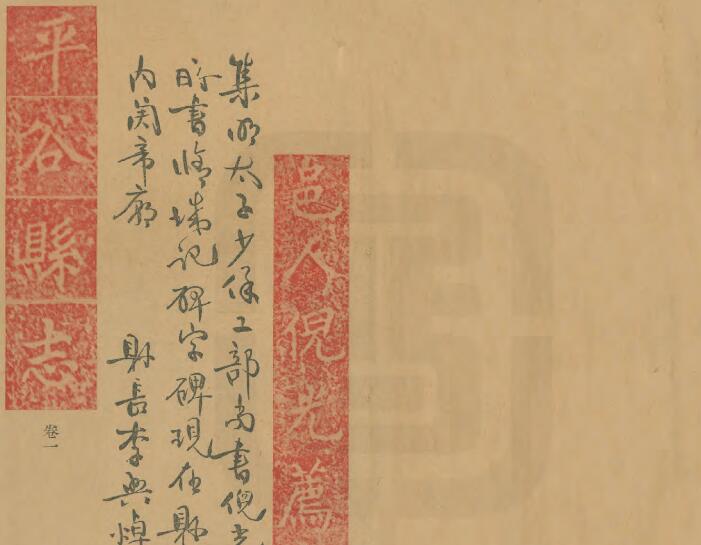 邑人倪光薦
集明太子少保工部尚書倪光
時書修城記碑字碑現在縣
内関帝廟
縣長李興焯
平谷縣志
卷一